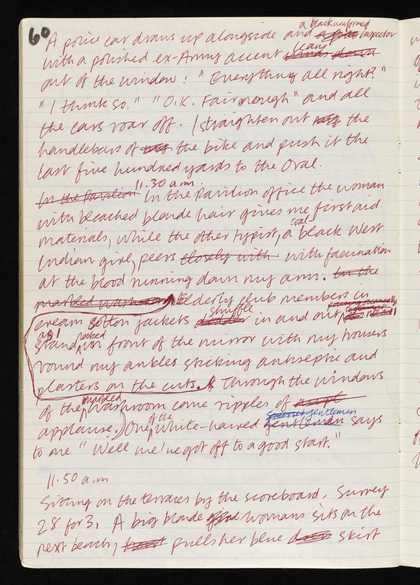 60
a black uniformed
A police car draws up alongside and a police inspector
with a polished ex-Army accent leans
out of the window: "Everything all right?"
"I think so." "O.K. Fairnough" and all
the cars roar off. I straighten out the
handlebars of the bike and push it the
last five hundred yards to the Oval.
11.30 a.m.
In the Pavilion In the Pavilion office the woman
with bleached blonde hair gives me first aid
materials, while the other typist, a black West
Indian girl, peers closely with with fascination
at the blood running down my arm. In the
marbled washroom Elderly club members in
cream cotton jackets shuffle in and out
as I stand, naked in front of the mirror with my trousers
round my ankles sticking antiseptic and
plasters on the cuts. Through the windows
of the marbled washroom come ripples of
applause. One of the white-haired gentlemen says
to me "Well we've got off to a good start."
11.50 a.m
Sitting on the terraces by the scoreboard. Surrey
28 for 3. A big blonde womans sits on the
next bench, pulls her blue skirt